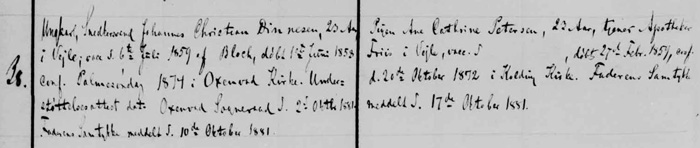 38.
Ungkarl, Snedkersvend Johannes Christian Dinnesen, 23 Aar,
i Vejle; vacc. d. 6te Juli 1859 af Bloch, døbt 1ste Juni 1858
conf. Palmesøndag 1874 i Oxenvad Kirke. Under-
støttelsesattest dat. Oxenvad Sogneraad d. 2 Oktbr 1881.
Faderens Samtykke meddelt d. 10de Oktober 1881.
Pigen Ane Cathrine Petersen, 23 Aar, tjener Apotheker
Friis i Vejle, vacc. d. , døbt 27de Febr. 1859, conf.
d. 20de Oktober 1872 i Kolding Kirke. Faderens Samtyk
meddelt d. 17de Oktober 1881.